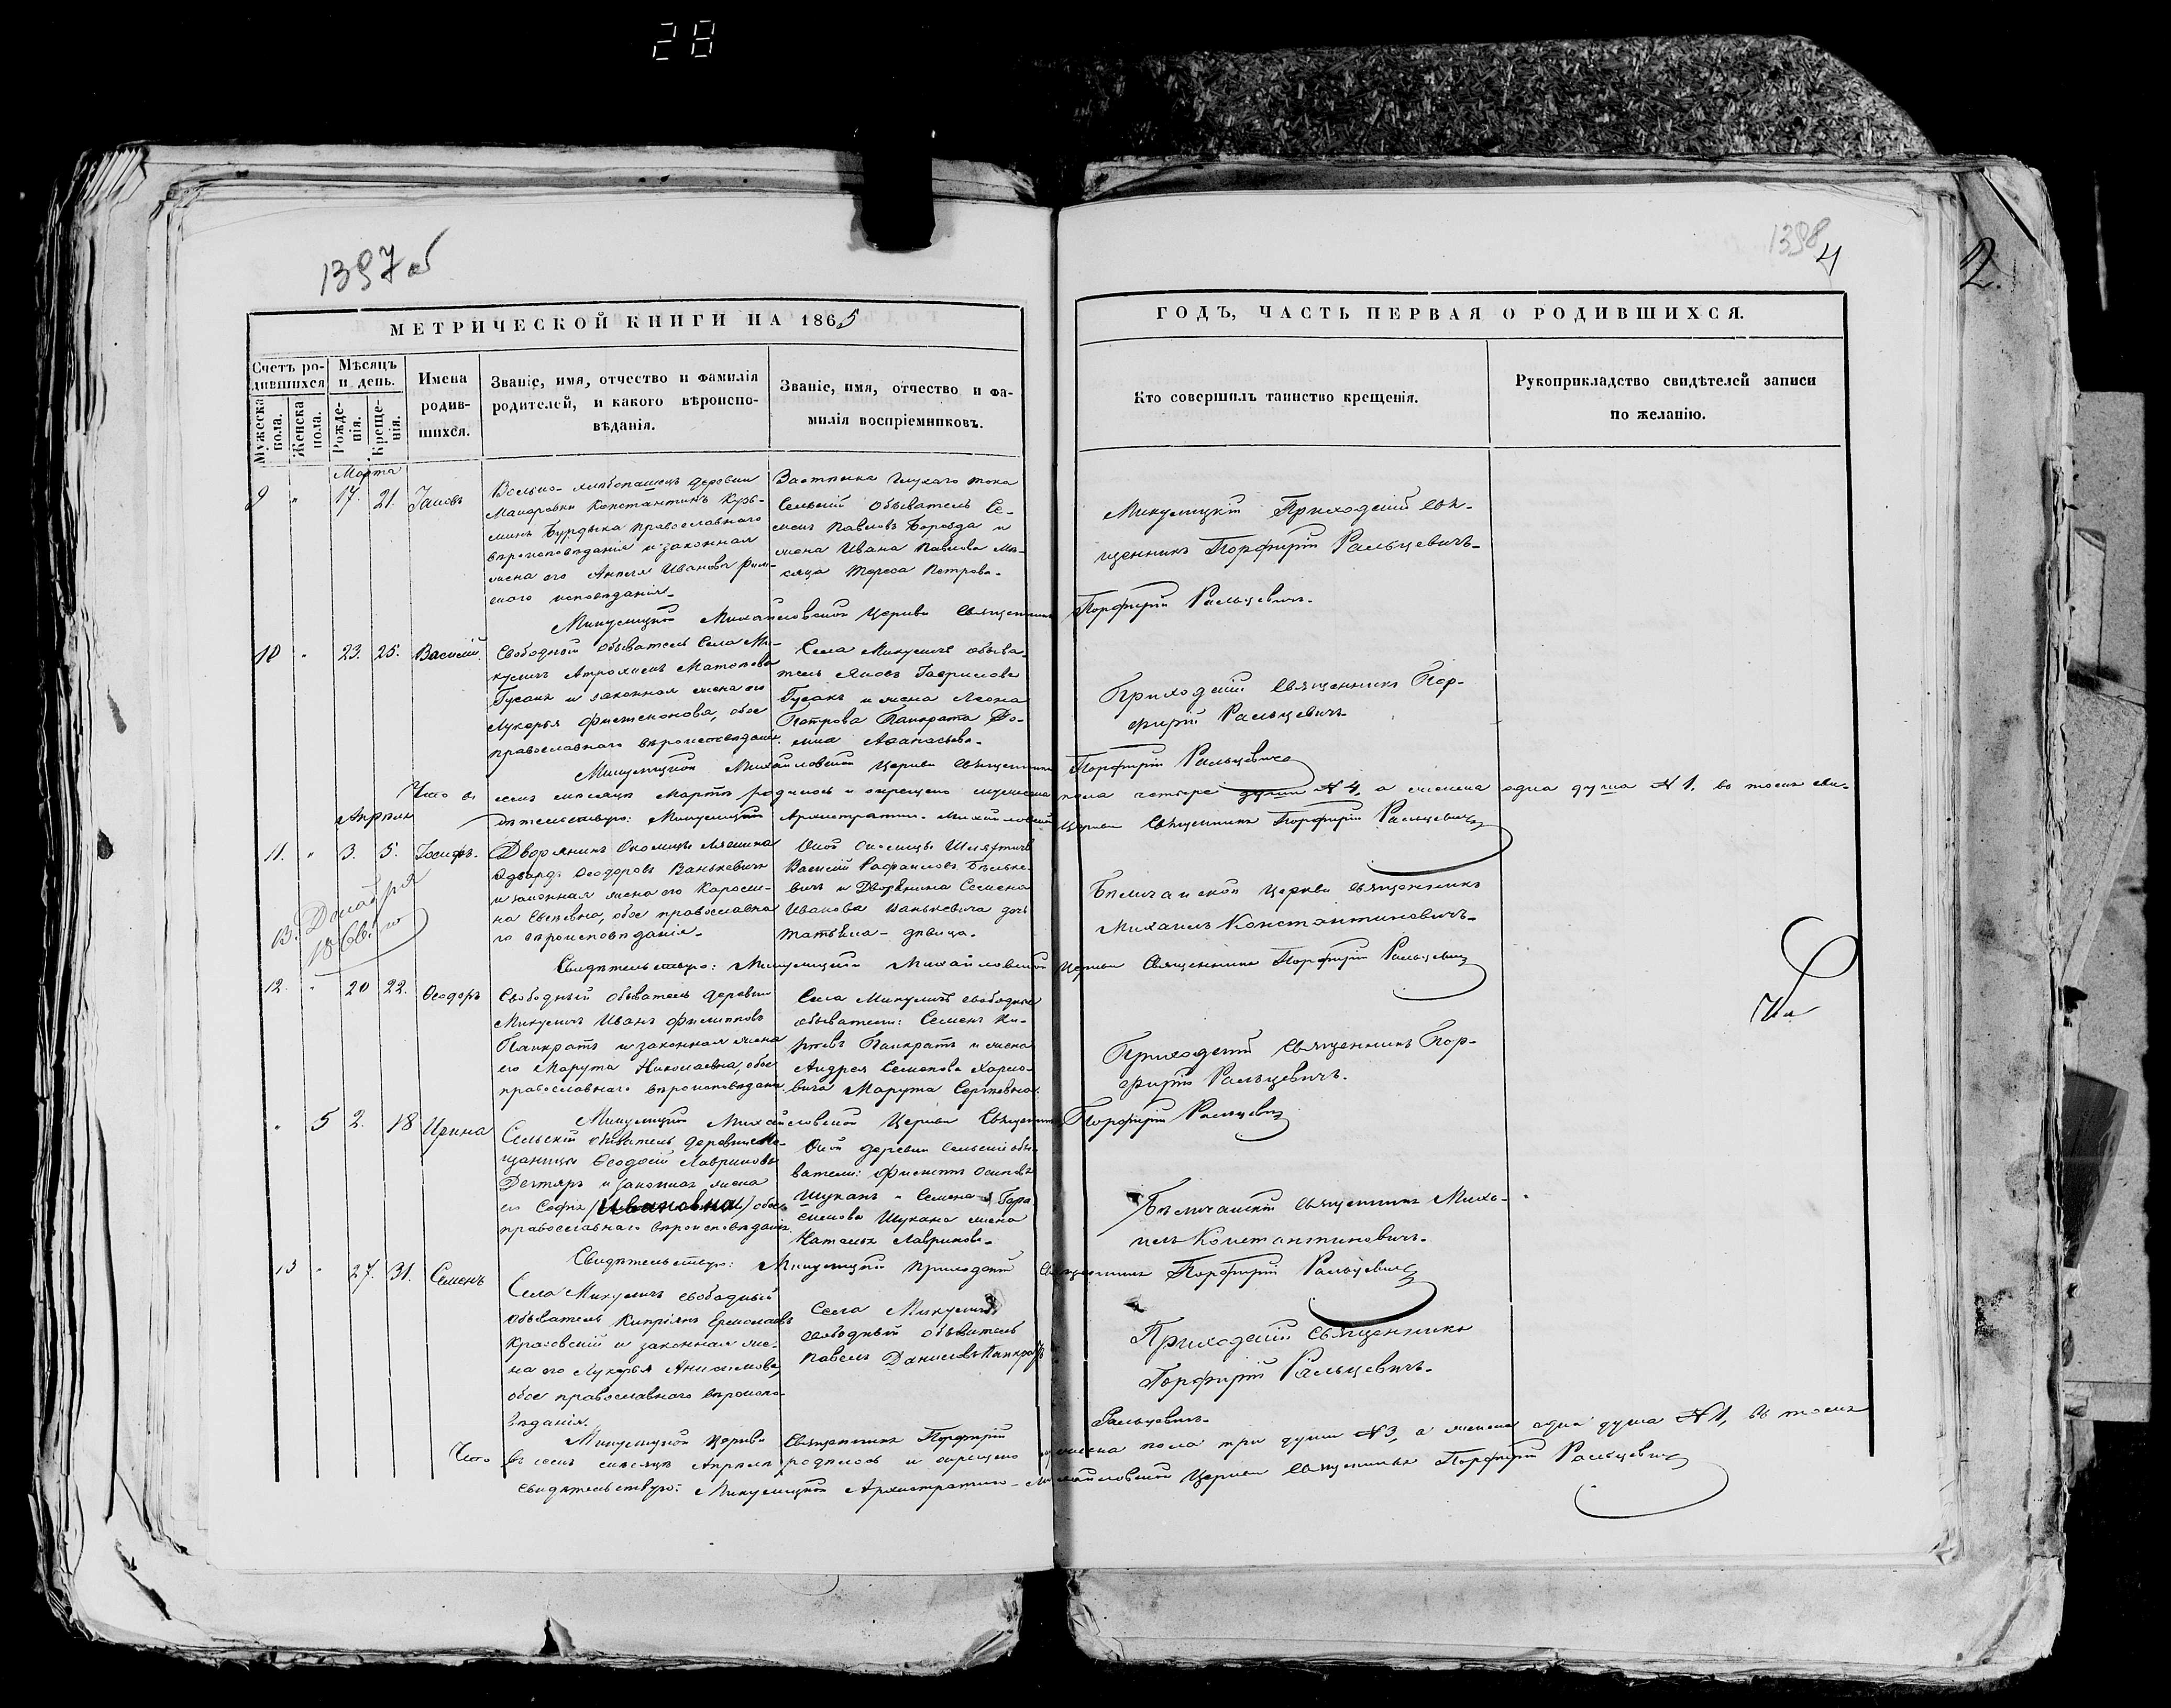 28
1397 об
1398
4
2.
МЕТРИЧЕСКОЙ КНИГИ НА 1865
ГОДЪ, ЧАСТЬ ПЕРВАЯ О РОДИВШИХСЯ.
Счетъ родившихся
Мужеска пола.
Женска пола.
Мѣсяцъ и день.
Рожденія.
Крещенія.
Имена родившихся.
Званіе, имя, отчество и фамилія
родителей, и какого вѣроиспо-
вѣданія.
Званіе, имя, отчество и фа-
милія воспріемниковъ.
Кто совершилъ таинство крещенія.
Рукоприкладство свидѣтелей записи
по желанію.
Марта
9 " 17. 21. Іаковъ
Вольно-хлѣбопашецъ деревни
Константинъ Кузь-
минъ Бурдыка православнаго
вѣроисповѣданія и законная
жена его Анеля Иванова рим-
скаго исповѣданія.
Застѣнка Глухаго тока
Сельскій обыватель Се-
менъ Павловъ Борозда и
жена Ивана Павлова Мы-
Тереса Петрова.
Микулицкій Приходскій Свя-
щенникъ Порфирій Ральцевичъ.
Микулицкой Михайловской Церкви Священникъ Порфирій Ральцевичъ.
10 " 23. 25. Василій.
Свободный обыватель Села Ми-
куличъ
Гусакъ и законная жена его
Лукерья Филимонова, обое
православнаго вѣроисповѣданія.
Села Микуличъ обыва-
тель Яковъ Гаврилова
Гусакъ и жена Леона
Петрова Панкрата До-
мна Аѳанасьева.
Приходскій Священникъ Пор-
фирій Ральцевичъ.
Микулицкой Михайловской Церкви Священникъ Порфирій Ральцевичъ
Что въ семъ мѣсяцѣ Мартѣ родилось и окрещено мужеска пола четыре души № 4, а женска одна душа № 1. въ томъ сви-
дѣтельствую: Микулицкой Архистратиго-Михайловской Церкви Священникъ Порфирій Ральцевичъ
Апрѣля
11. " 3. 5. Іосифъ.
Дворянинъ Околицы
Эдвардъ Ѳеодоровъ Ванькевичъ
и законная жена его Кароли-
на обое православна-
го вѣроисповѣданія.
Оной Околицы Шляхтичъ
Василій Рафаиловъ
вичъ и Дворянина Семена
Иванова Ванькевича дочь
Татьяна - дѣвица.
Бѣличанской Церкви Священникъ
Михаилъ Константиновичъ.
13. Декабря
Свидѣтельствую: Микулицкой Михайловской Церкви Священникъ Порфирій Ральцевичъ
12. " 20 22. Ѳеодоръ
Свободный обыватель деревни
Микуличъ Иванъ Филипповъ
Панкратъ и законная жена
его Марута Николаевна, обое
православнаго вѣроисповѣданія.
Села Микуличъ свободные
обыватели: Семенъ Ки-
Панкратъ и жена
Андрея Семенова Харко-
вича Марута Сергѣевна.
Приходскій Священникъ Пор-
фирій Ральцевичъ.
Микулицкой Михайловской Церкви Священникъ Порфирій Ральцевичъ
" 5 2. 18 Ирина
Сельскій обыватель деревни
Ѳеодосій Лавриновъ
Дегтярь и законная жена
его Софія (Ивановна) обое
православнаго вѣроисповѣданія.
Оной деревни Сельскій обы-
ватели: Осиповъ
Шуканъ и Семена Гера-
симова Шукана жена
Наталья Лавринова.
Бѣличанскій Священникъ Миха-
илъ Константиновичъ.
Свидѣтельствую: Микулицкій Приходскій Священникъ Порфирій Ральцевичъ
13 " 27. 31. Семенъ
Села Микуличъ свободный
обыватель Кипріянъ Ермолаевъ
Красовскій и законная же-
на его Лукерья Анисимова,
обое православнаго вѣроиспо-
вѣданія.
Села Микуличъ
свободный обыватель
Павелъ Даниловъ Панкратъ
Приходскій Священникъ
Порфирій Ральцевичъ.
Микулицкой Церкви Священникъ Порфирій Ральцевичъ.
Что въ семъ мѣсяцѣ Апрѣлѣ родилось и окрещено мужеска пола три души № 3, а женска одна душа № 1, въ томъ
свидѣтельствую: Микулицкой Архистратиго-Михайловской Церкви Священникъ Порфирій Ральцевичъ